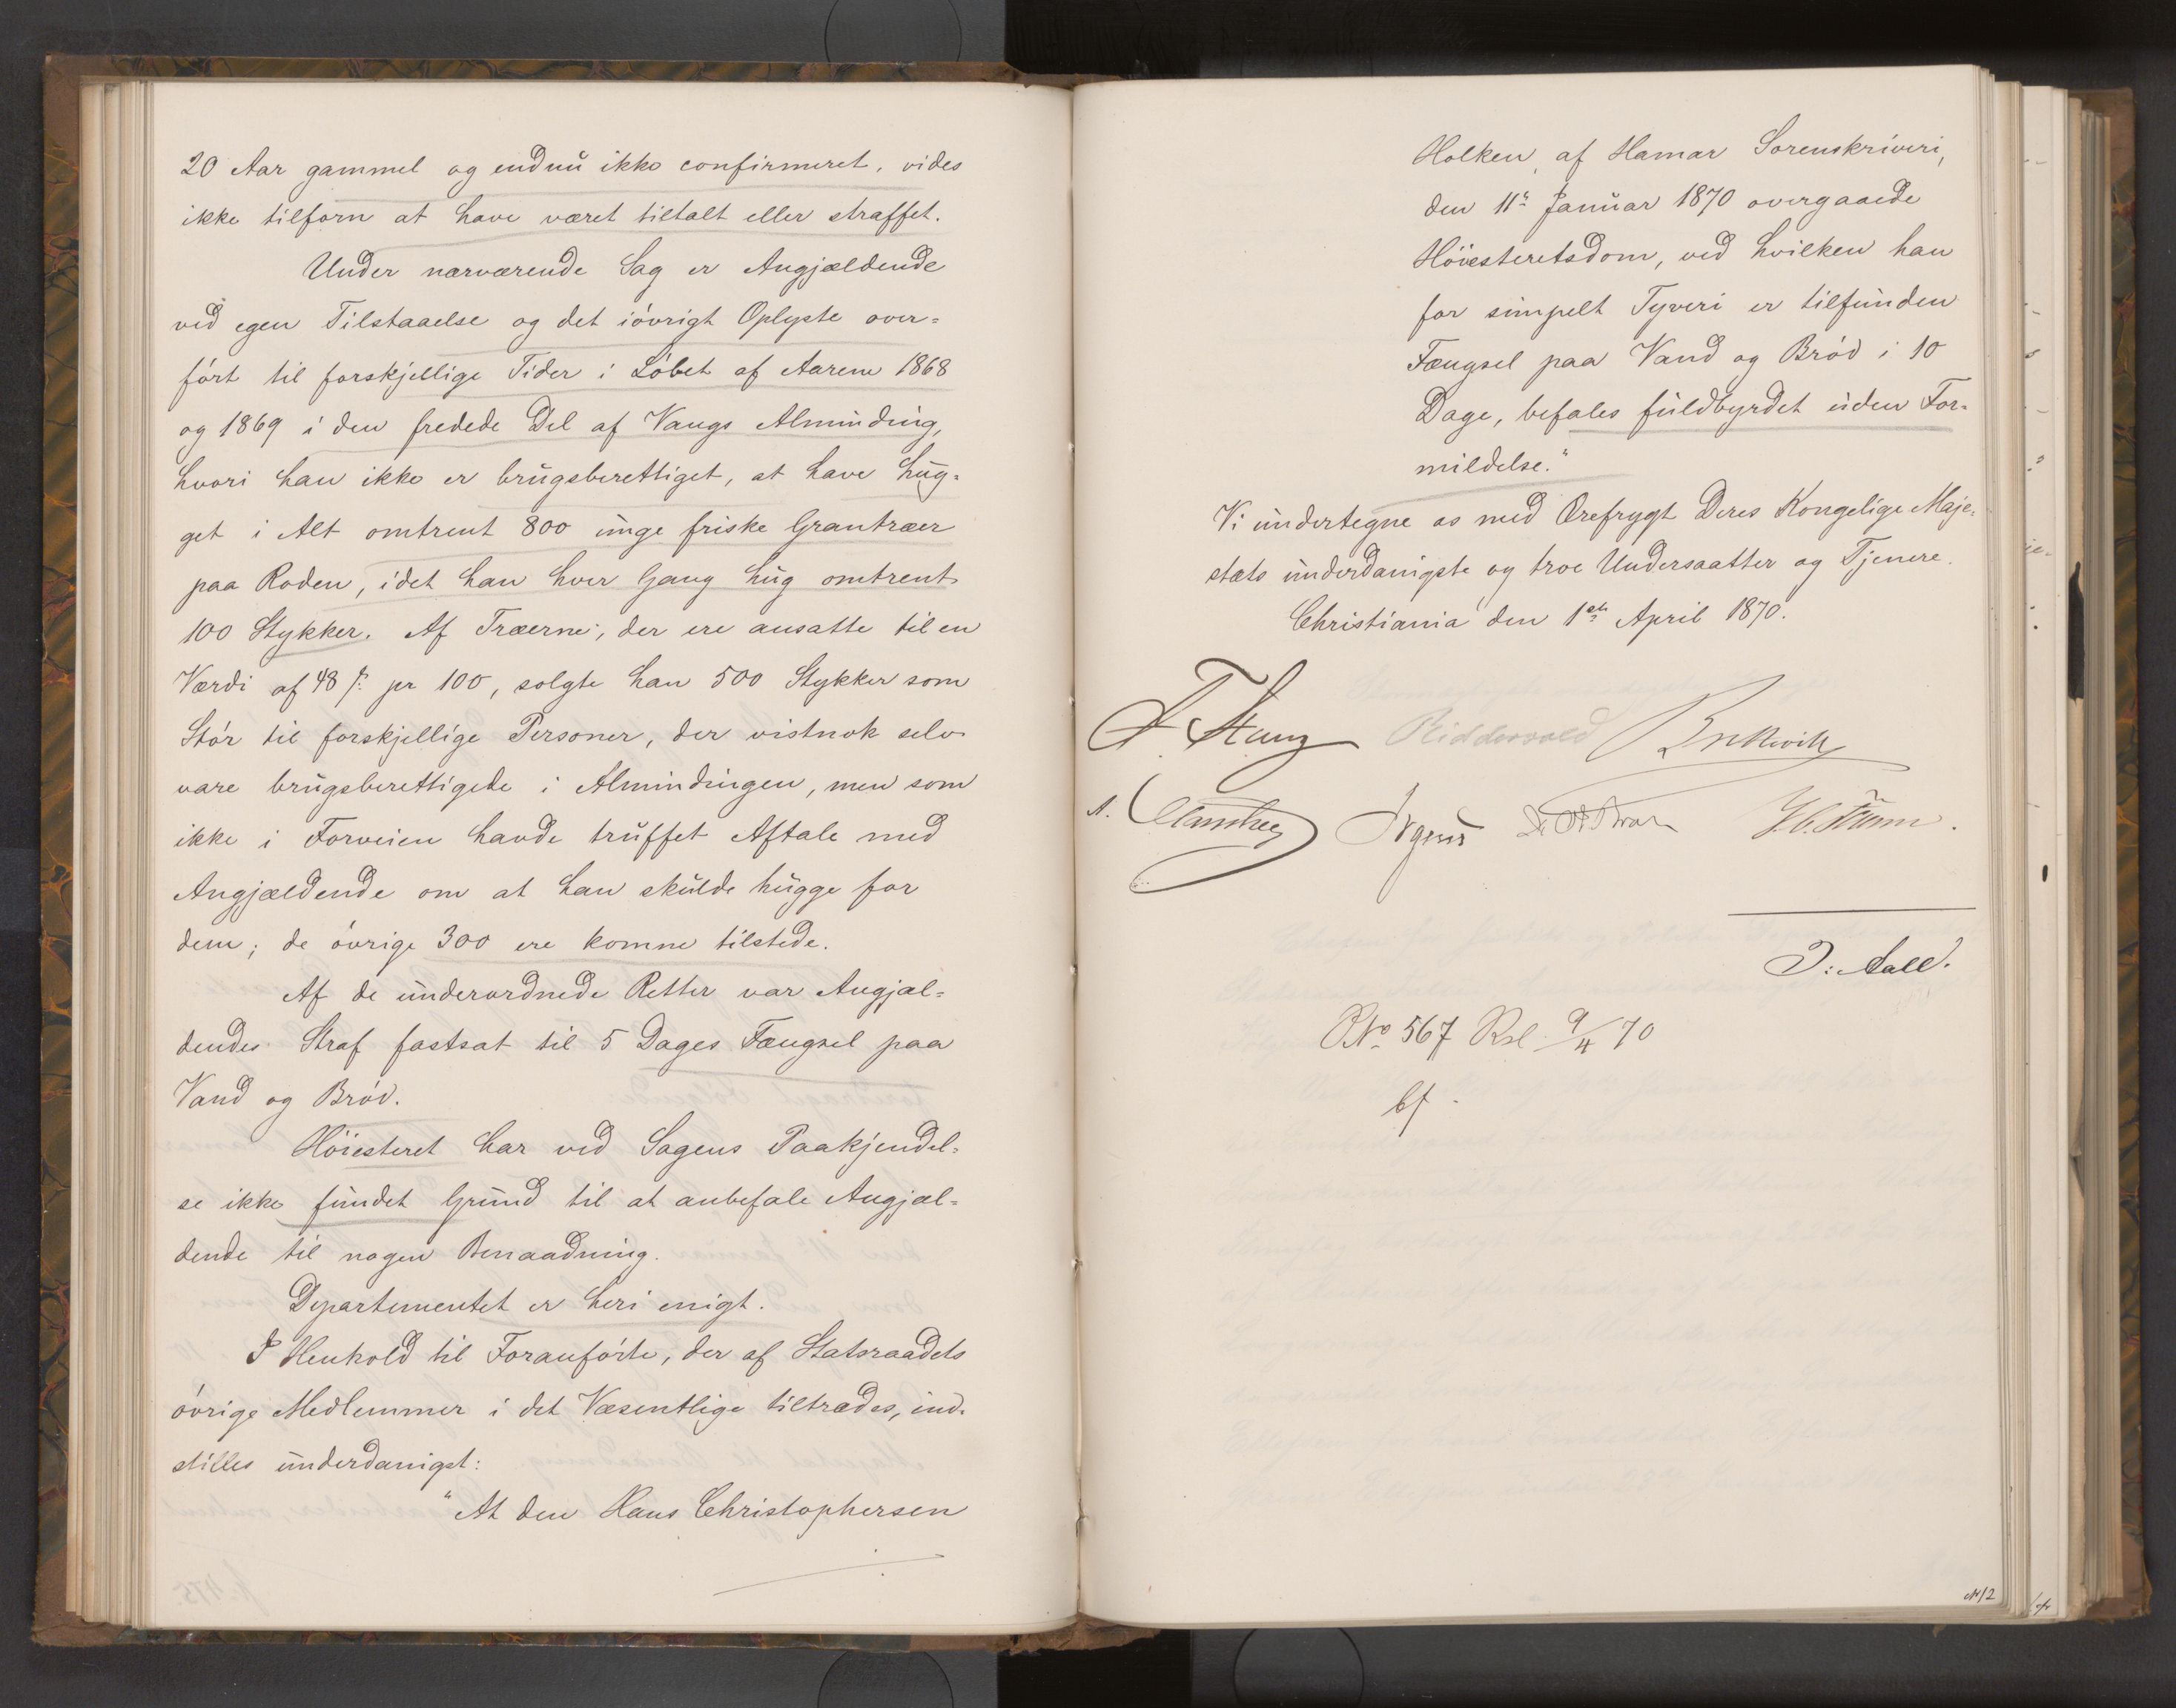 20 Aar gammel og endnu ikke confirmeret, vides
ikke tilforn at have været tiltalt eller straffet.
Under nærværende Sag er Angjældende
ved egen Tilstaaelse og det iøvrigt Oplyste over=
ført til forskjellige Tider i Løbet af Aarene 1868
og 1869 i den fredede Del af Vangs Alminding,
hvori han ikke er brugsberettiget, at have hug=
get i Alt omtrent 800 unge friske Grantræer
paa Roden, idet han hver Gang hug omtrent
100 Stykker. Af Træerne, der ere ansatte til en
Værdi af 48 ß pr 100, solgte han 500 Stykker som
Stør til forskjellige Personer, der vistnok selv
vare brugsberettigede i Almindingen, men som
ikke i Forveien havde truffet Aftale med
Angjældende om at han skulde hugge for
dem; de øvrige 300 ere komne tilstede.
Af de underordnede Retter var Angjæl=
dendes Straf fastsat til 5 Dages Fængsel paa
Vand og Brød.
Høiesteret har ved Sagens Paakjendel=
se ikke fundet Grund til at anbefale Angjæl=
dende til nogen Benaadning.
Departementet er heri enigt.
I Henhold til Foranførte, der af Statsraadets
øvrige Medlemmer i det Væsentlige tiltrædes, ind=
stilles underdanigst:
"At den Hans Christophersen
Holken, af Hamar Sorenskriveri,
den 11te Januar 1870 overgaaede
Høiesteretsdom, ved hvilken han
for simpelt Tyveri er tilfunden
Fængsel paa Vand og Brød i 10
Dage, befales fuldbyrdet uden For=
mildelse."
Vi undertegne os med Ærefrygt Deres Kongelige Maje=
stæts underdanigste og troe Undersaatter og Tjenere.
Christiania den 1ste April 1870.
F. Stang Riddervold Bretteville
N.
Irgens
J: Aall.
No 567 Rsl 9/4 70
bf.